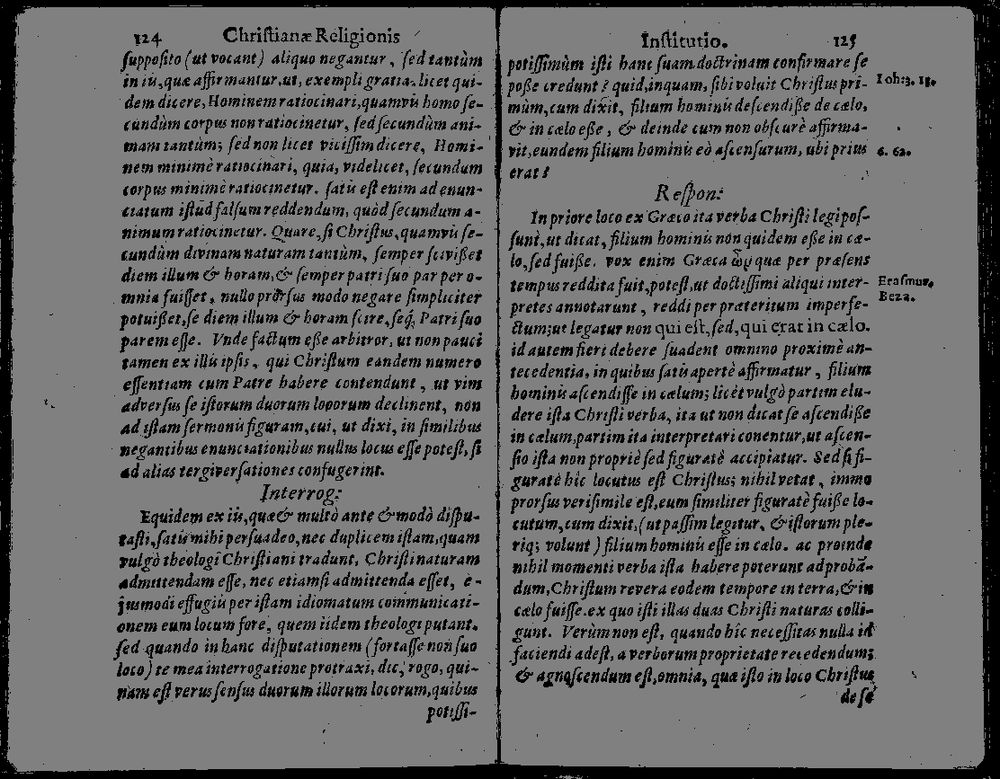 124 Christianæ Religionis
supposito (ut vocant) aliquo negantur, sed tantùm
in iis, quæ affirmantur. ut, exempli gratia. licet qui-
dem dicere, Hominem ratiocinari, quamvis homo se-
cundùm corpus non ratiocinetur, sed secundùm ani-
mam tantùm; sed non licet vicissim dicere, Homi-
nem minimè ratiocinari, quia, videlicet, secundum
corpus minimè ratiocinetur. satis est enim ad enun-
ciatum istud falsum reddendum, quòd secundum a-
nimum ratiocinetur. Quare, si Christus, quamvis se-
cundùm divinam naturam tantùm, semper scivißet
diem illum & horam, & semper patri suo par per o-
mnia fuisset, nullo prorsus modo negare simpliciter
potuißet, se diem illum & horam scire, seq́; Patri suo
parem esse. Vnde factum eße arbitror, ut non pauci
tamen ex illis ipsis, qui Christum eandem numero
essentiam cum Patre habere contendunt, ut vim
adversus se istorum duorum locorum declinent, non
ad istam sermonis figuram, cui, ut dixi, in similibus
negantibus enunciationibus nullus locus esse potest, si
ad alias tergiversationes confugerint.
Interrog:
Equidem ex iis, quæ & multò ante & modò dispu-
tasti, satis mihi persuadeo, nec duplicem istam, quam
vulgò theologi Christiani tradunt, Christi naturam
admittendam esse, nec etiamsi admittenda esset, e-
jusmodi effugiis per istam idiomatum communicati-
onem eum locum fore, quem iidem theologi putant.
sed quando in hanc disputationem (fortasse non suo
loco) te mea interrogatione protraxi, dic, rogo, qui-
nam est verus sensus duorum illorum locorum, quibus
potissi-
Institutio. 125
potissimùm isti hanc suam doctrinam confirmare se
poße credunt? quid, inquam, sibi voluit Christus pri-
mùm, cum dixit, filium hominis descendiße de cælo,
& in cælo eße, & deinde cum non obscurè affirma-
vit, eundem filium hominis eò ascensurum, ubi prius
erat?
Ioh: 3. 13.
6. 62.
Respon:
In priore loco ex Græco ita verba Christi legi pos-
sunt, ut dicat, filium hominis non quidem eße in cæ-
lo, sed fuiße. vox enim Græca ὢν, quæ per præsens
tempus reddita fuit, potest, ut doctissimi aliqui inter-
pretes annotarunt, reddi per præteritum imperfe-
ctum; ut legatur non qui est, sed, qui erat in cælo.
id autem fieri debere suadent omnino proximè an-
tecedentia, in quibus satis apertè affirmatur, filium
hominis ascendisse in cælum; licèt vulgò partim elu-
dere ista Christi verba, ita ut non dicat se ascendiße
in cælum, partim ita interpretari conentur, ut ascen-
sio ista non propriè sed figuratè accipiatur. Sed si fi-
guratè hic locutus est Christus; nihil vetat, immo
prorsus verisimile est, eum similiter figuratè fuiße lo-
cutum, cum dixit, (ut passim legitur, & istorum ple-
riq; volunt) filium hominis esse in cælo. ac proinde
nihil momenti verba ista habere poterunt ad proban-
dum, Christum revera eodem tempore in terra, & in
cælo fuisse. ex quo isti illas duas Christi naturas colli-
gunt. Verùm non est, quando hîc necessitas nulla id
faciendi adest, a verborum proprietate recedendum;
& agnoscendum est, omnia, quæ isto in loco Christus
de se
Erasmus.
Beza.